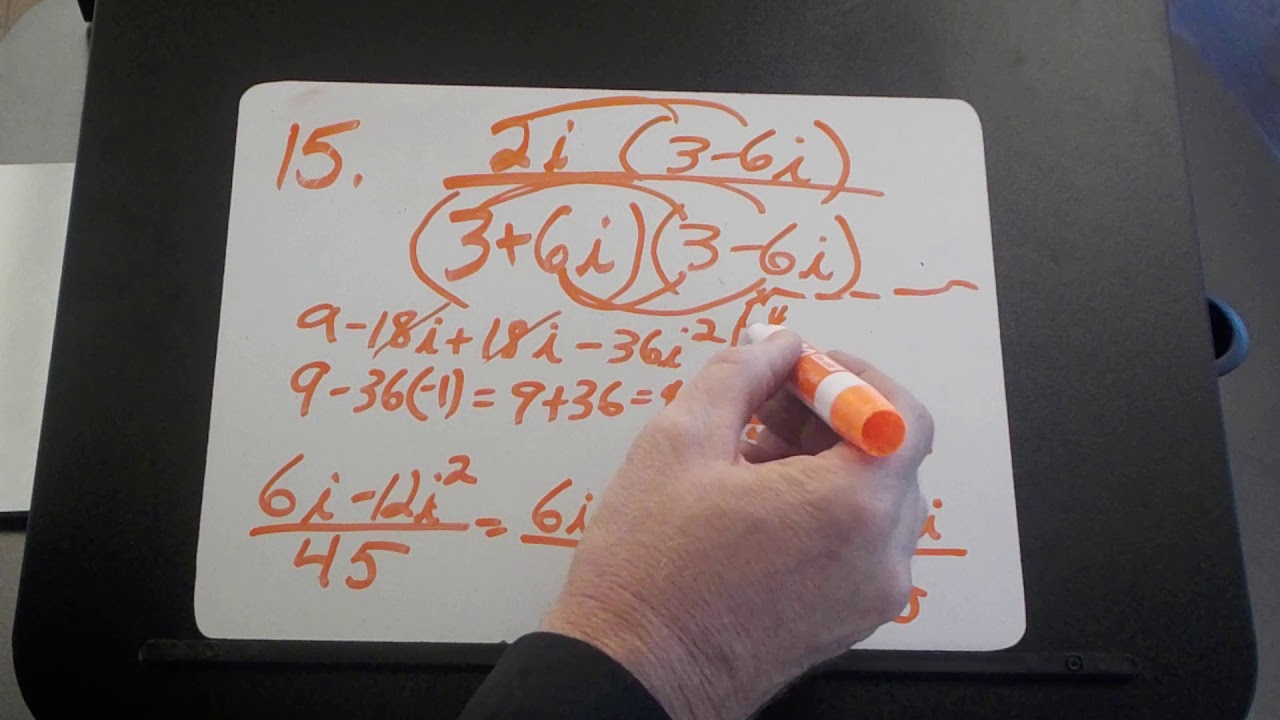 15. 2i (3-6i)
(3+6i)(3-6i)
9-18i+18i-36i²
9-36(-1)=9+36=
6i-12i² = 6i
45